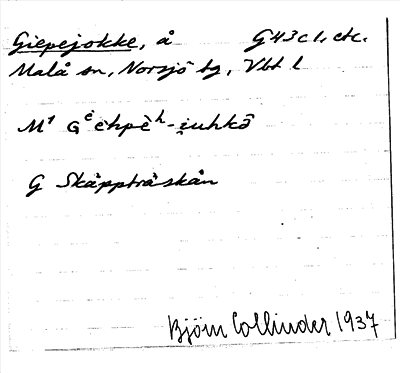 Giepejokke, å G43c1, etc.
Malå sn, Norsjö tg, Vbt l
M¹ Gᵉèhpèʰ-i̯uhkō
G Skäppträskån
Björn Collinder 1937